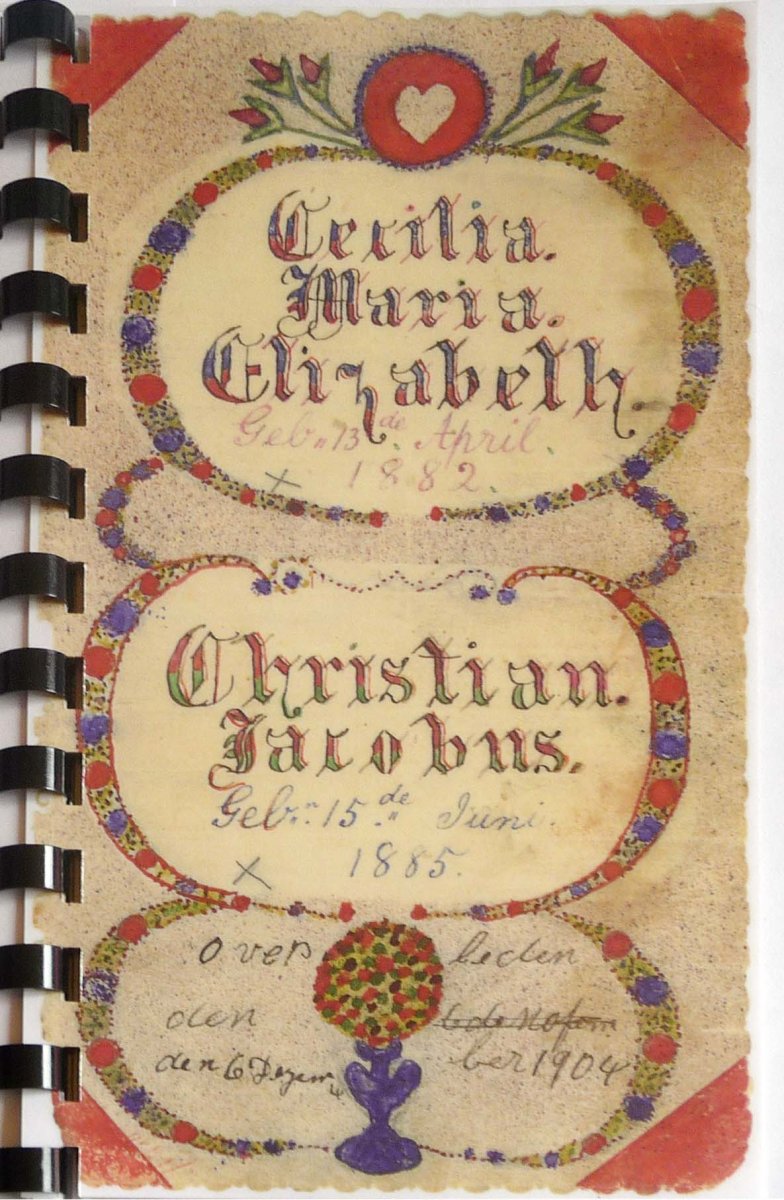 Cecilia.
Maria.
Elizabeth.
Geb.n 13de April.
× 1882.
Christian.
Jacobus.
Geb.n 15de Juni.
× 1885.
over leden
den 6de Nofem
den 6 Dezem ber 1904